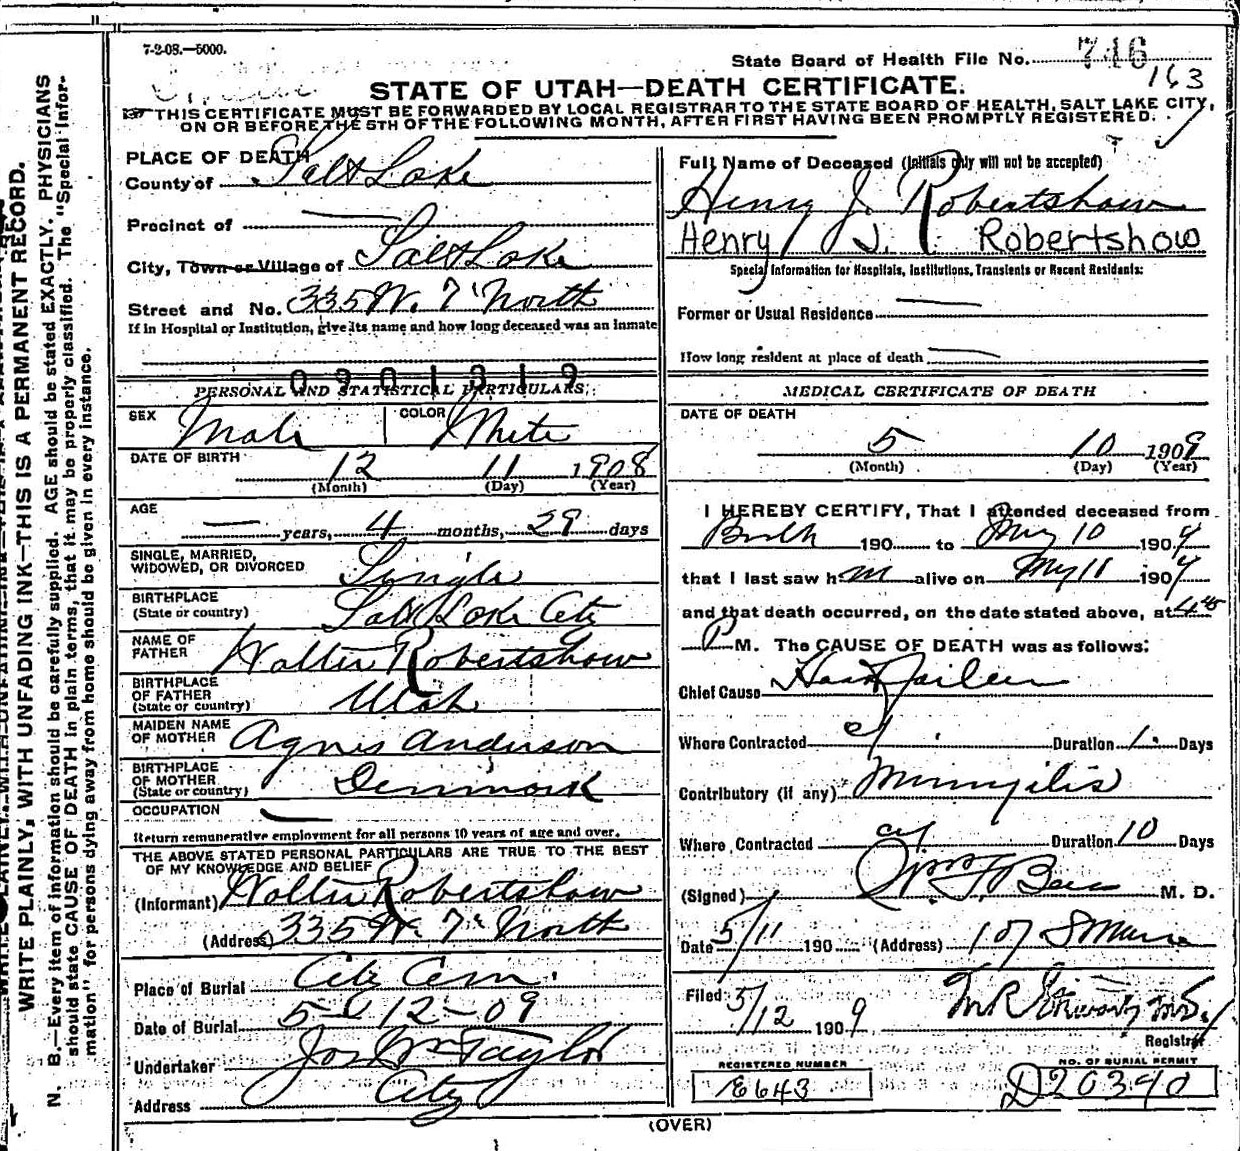 7-2-08.—5000.
State Board of Health File No. 746
163
STATE OF UTAH—DEATH CERTIFICATE.
THIS CERTIFICATE MUST BE FORWARDED BY LOCAL REGISTRAR TO THE STATE BOARD OF HEALTH, SALT LAKE CITY,
ON OR BEFORE THE 5TH OF THE FOLLOWING MONTH, AFTER FIRST HAVING BEEN PROMPTLY REGISTERED.
PLACE OF DEATH
County of Salt Lake
Precinct of
City, Town or Village of Salt Lake
Street and No. 335 W. 7' North
If in Hospital or Institution, give its name and how long deceased was an inmate
0901319
PERSONAL AND STATISTICAL PARTICULARS.
SEX Male COLOR White
DATE OF BIRTH 12 11 1908
(Month) (Day) (Year)
AGE — years, 4 months, 29 days
SINGLE, MARRIED,
WIDOWED, OR DIVORCED Single
BIRTHPLACE
(State or country) Salt Lake City
NAME OF
FATHER Walter Robertshow
BIRTHPLACE
OF FATHER
(State or country) Utah
MAIDEN NAME
OF MOTHER Agnes Anderson
BIRTHPLACE
OF MOTHER
(State or country) Denmark
OCCUPATION —
Return remunerative employment for all persons 10 years of age and over.
THE ABOVE STATED PERSONAL PARTICULARS ARE TRUE TO THE BEST
OF MY KNOWLEDGE AND BELIEF
(Informant) Walter Robertshow
(Address) 335 W. 7' North
Place of Burial City Cem.
Date of Burial 5-12-09
Undertaker Jos Wm Taylor
Address City
Full Name of Deceased (Initials only will not be accepted)
Henry J. Robertshow
Henry J. Robertshow
Special Information for Hospitals, Institutions, Transients or Recent Residents:
Former or Usual Residence —
How long resident at place of death —
MEDICAL CERTIFICATE OF DEATH
DATE OF DEATH
5 10 1909
(Month) (Day) (Year)
I HEREBY CERTIFY, That I attended deceased from
Birth 190 to May 10 1909
that I last saw h im alive on May 11 1909
and that death occurred, on the date stated above, at 4:45
P M. The CAUSE OF DEATH was as follows:
Chief Cause Heart Failure
Where Contracted City Duration 1 Days
Contributory (if any)
Where Contracted City Duration 10 Days
(Signed) M. D.
Date 5/11 190 (Address) 107 S Main
Filed 5/12 1909
Registrar
REGISTERED NUMBER
E643
NO. OF BURIAL PERMIT
D20390
(OVER)
WRITE PLAINLY, WITH UNFADING INK—THIS IS A PERMANENT RECORD.
N. B.—Every item of information should be carefully supplied. AGE should be stated EXACTLY. PHYSICIANS
should state CAUSE OF DEATH in plain terms, that it may be properly classified. The "Special Infor-
mation" for persons dying away from home should be given in every instance.